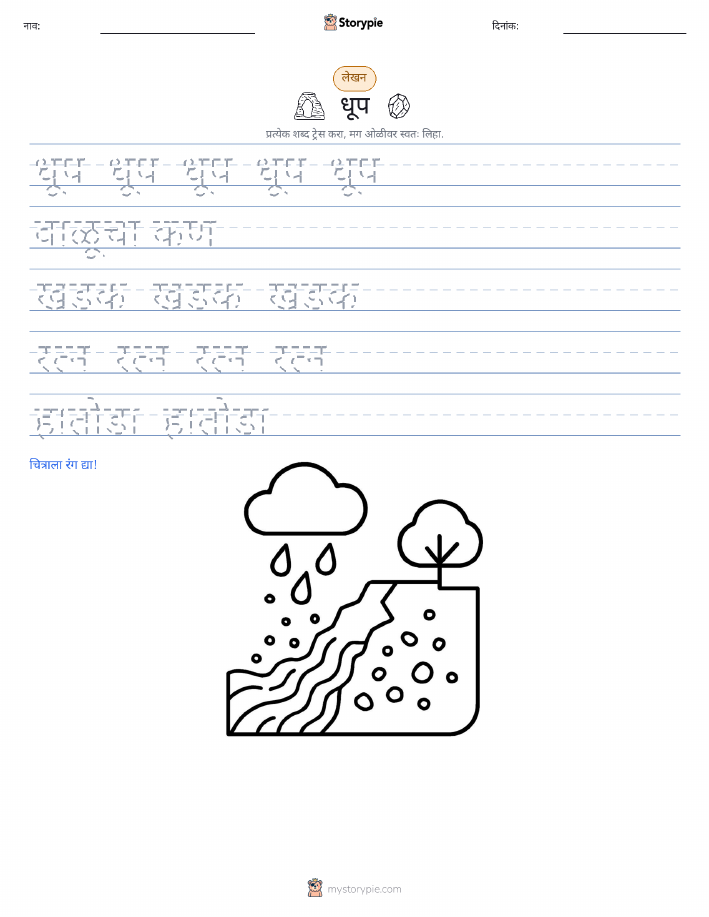 नाव: Storypie दिनांक:
लेखन
धूप
प्रत्येक शब्द ट्रेस करा, मग ओळीवर स्वतः लिहा.
धूप धूप धूप धूप धूप
वाळूचा कण
खडक खडक खडक
रत्न रत्न रत्न रत्न
हातोडा हातोडा
चित्राला रंग द्या!
mystorypie.com